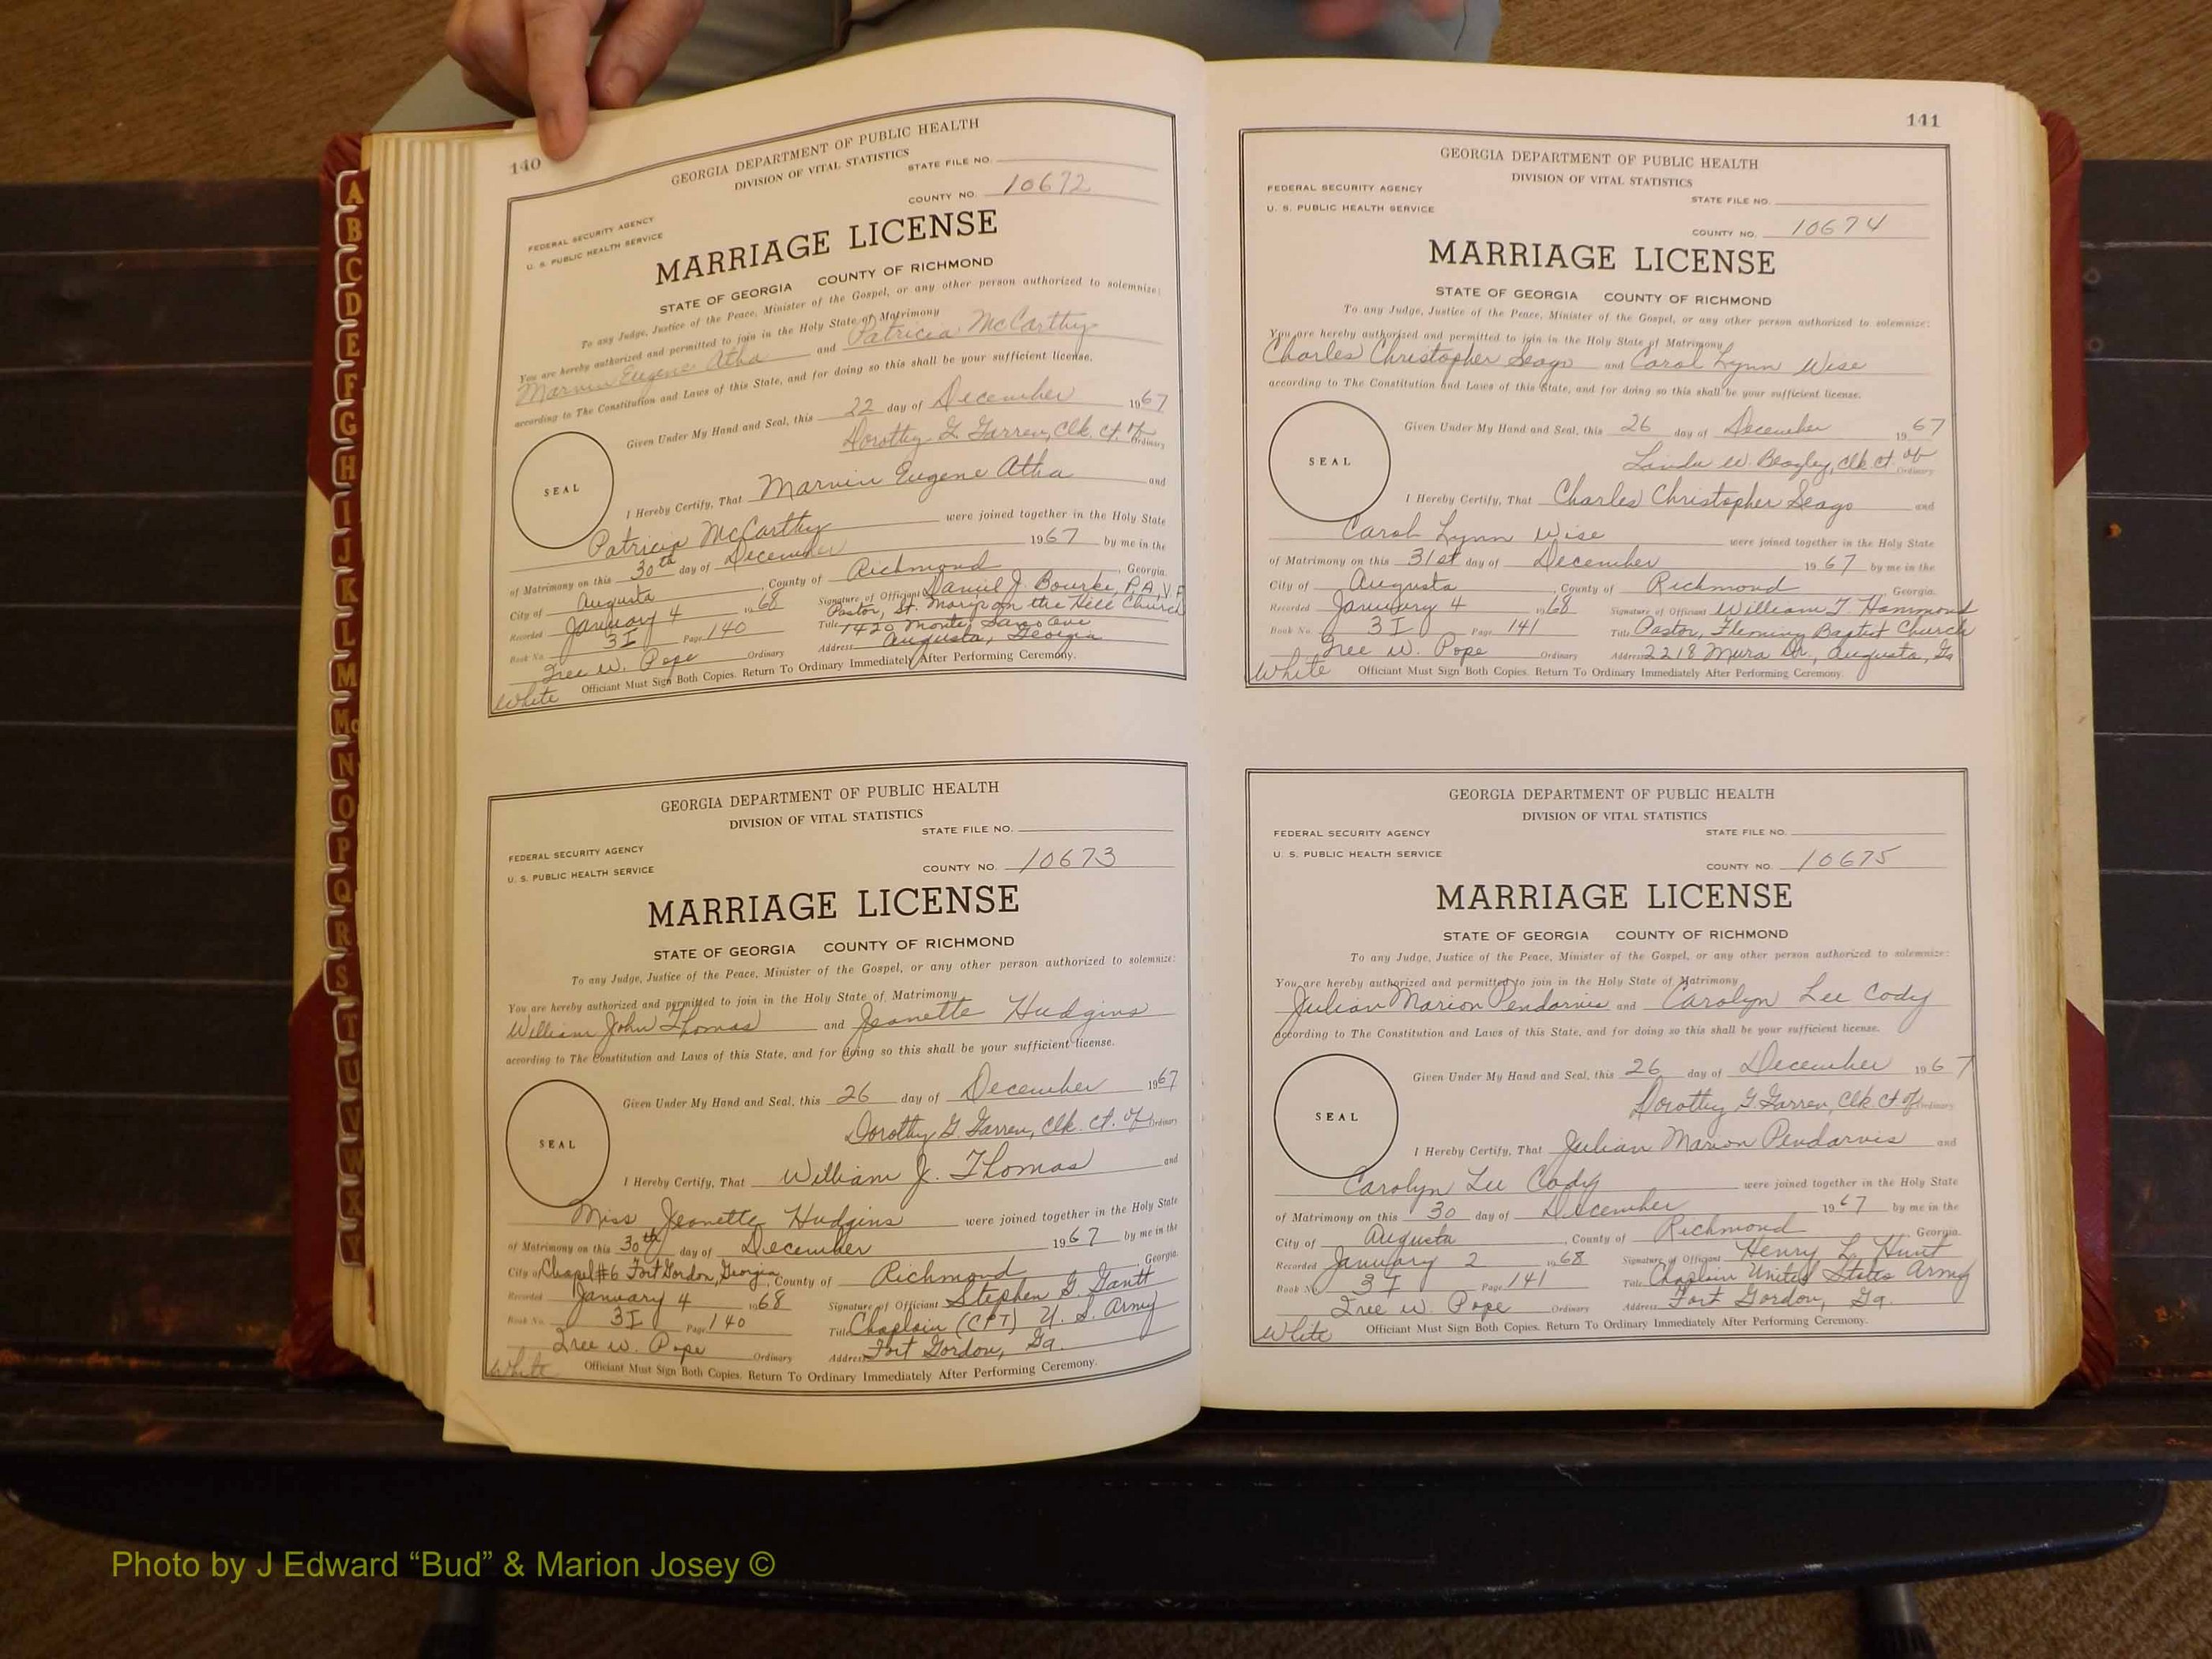 A
B
C
D
E
F
G
H
I
J
K
L
M
Mc
N
O
P
Q
R
S
T
U
V
W
X
Y
140
GEORGIA DEPARTMENT OF PUBLIC HEALTH
DIVISION OF VITAL STATISTICS
STATE FILE NO.
COUNTY NO. 10672
FEDERAL SECURITY AGENCY
U. S. PUBLIC HEALTH SERVICE
MARRIAGE LICENSE
STATE OF GEORGIA COUNTY OF RICHMOND
To any Judge, Justice of the Peace, Minister of the Gospel, or any other person authorized to solemnize:
You are hereby authorized and permitted to join in the Holy State of Matrimony
Marvin Eugene Atha and Patricia McCarthy
according to The Constitution and Laws of this State, and for doing so this shall be your sufficient license.
Given Under My Hand and Seal, this 22 day of December 1967
Dorothy G. Garren, Clk. Ct. of Ordinary
SEAL
I Hereby Certify, That Marvin Eugene Atha and
Patricia McCarthy were joined together in the Holy State
of Matrimony on this 30th day of December 1967 by me in the
City of Augusta, County of Richmond, Georgia.
Recorded January 4 1968 Signature of Officiant Daniel J. Bourke, P.A., V.F.
Book No. 3I Page 140 Title Pastor, St. Marys on the Hill Church
Tree W. Pope Ordinary Address 1420 Monte Sano Ave
Augusta, Georgia
White Officiant Must Sign Both Copies. Return To Ordinary Immediately After Performing Ceremony.
GEORGIA DEPARTMENT OF PUBLIC HEALTH
DIVISION OF VITAL STATISTICS
STATE FILE NO.
FEDERAL SECURITY AGENCY
U. S. PUBLIC HEALTH SERVICE
COUNTY NO. 10673
MARRIAGE LICENSE
STATE OF GEORGIA COUNTY OF RICHMOND
To any Judge, Justice of the Peace, Minister of the Gospel, or any other person authorized to solemnize:
You are hereby authorized and permitted to join in the Holy State of Matrimony
William John Thomas and Jeanette Hudgins
according to The Constitution and Laws of this State, and for doing so this shall be your sufficient license.
Given Under My Hand and Seal, this 26 day of December 1967
Dorothy G. Garren, Clk. Ct. of Ordinary
SEAL
I Hereby Certify, That William J. Thomas and
Miss Jeanette Hudgins were joined together in the Holy State
of Matrimony on this 30th day of December 1967 by me in the
City of Chapel #6 Fort Gordon, Georgia, County of Richmond, Georgia.
Recorded January 4 1968 Signature of Officiant Stephen G. Gantt
Book No. 3I Page 140 Title Chaplain (CPT) U. S. Army
Tree W. Pope Ordinary Address Fort Gordon, Ga.
White Officiant Must Sign Both Copies. Return To Ordinary Immediately After Performing Ceremony.
141
GEORGIA DEPARTMENT OF PUBLIC HEALTH
DIVISION OF VITAL STATISTICS
FEDERAL SECURITY AGENCY
U. S. PUBLIC HEALTH SERVICE
STATE FILE NO.
COUNTY NO. 10674
MARRIAGE LICENSE
STATE OF GEORGIA COUNTY OF RICHMOND
To any Judge, Justice of the Peace, Minister of the Gospel, or any other person authorized to solemnize:
You are hereby authorized and permitted to join in the Holy State of Matrimony
Charles Christopher Seago and Carol Lynn Wise
according to The Constitution and Laws of this State, and for doing so this shall be your sufficient license.
Given Under My Hand and Seal, this 26 day of December 1967
Linda W. Beazley, Clk. Ct. of Ordinary
SEAL
I Hereby Certify, That Charles Christopher Seago and
Carol Lynn Wise were joined together in the Holy State
of Matrimony on this 31st day of December 1967 by me in the
City of Augusta, County of Richmond, Georgia.
Recorded January 4 1968 Signature of Officiant William T. Hammond
Book No. 3I Page 141 Title Pastor, Fleming Baptist Church
Tree W. Pope Ordinary Address 2218 Mura Dr., Augusta, Ga
White Officiant Must Sign Both Copies. Return To Ordinary Immediately After Performing Ceremony.
GEORGIA DEPARTMENT OF PUBLIC HEALTH
DIVISION OF VITAL STATISTICS
FEDERAL SECURITY AGENCY
U. S. PUBLIC HEALTH SERVICE
STATE FILE NO.
COUNTY NO. 10675
MARRIAGE LICENSE
STATE OF GEORGIA COUNTY OF RICHMOND
To any Judge, Justice of the Peace, Minister of the Gospel, or any other person authorized to solemnize:
You are hereby authorized and permitted to join in the Holy State of Matrimony
Julian Marion Pendarvis and Carolyn Lee Cody
according to The Constitution and Laws of this State, and for doing so this shall be your sufficient license.
Given Under My Hand and Seal, this 26 day of December 1967
Dorothy G. Garren, Clk. Ct of Ordinary
SEAL
I Hereby Certify, That Julian Marion Pendarvis and
Carolyn Lee Cody were joined together in the Holy State
of Matrimony on this 30 day of December 1967 by me in the
City of Augusta, County of Richmond, Georgia.
Recorded January 2 1968 Signature of Officiant Henry L. Hunt
Book No. 3I Page 141 Title Chaplain United States Army
Tree W. Pope Ordinary Address Fort Gordon, Ga.
White Officiant Must Sign Both Copies. Return To Ordinary Immediately After Performing Ceremony.
Photo by J Edward “Bud” & Marion Josey ©